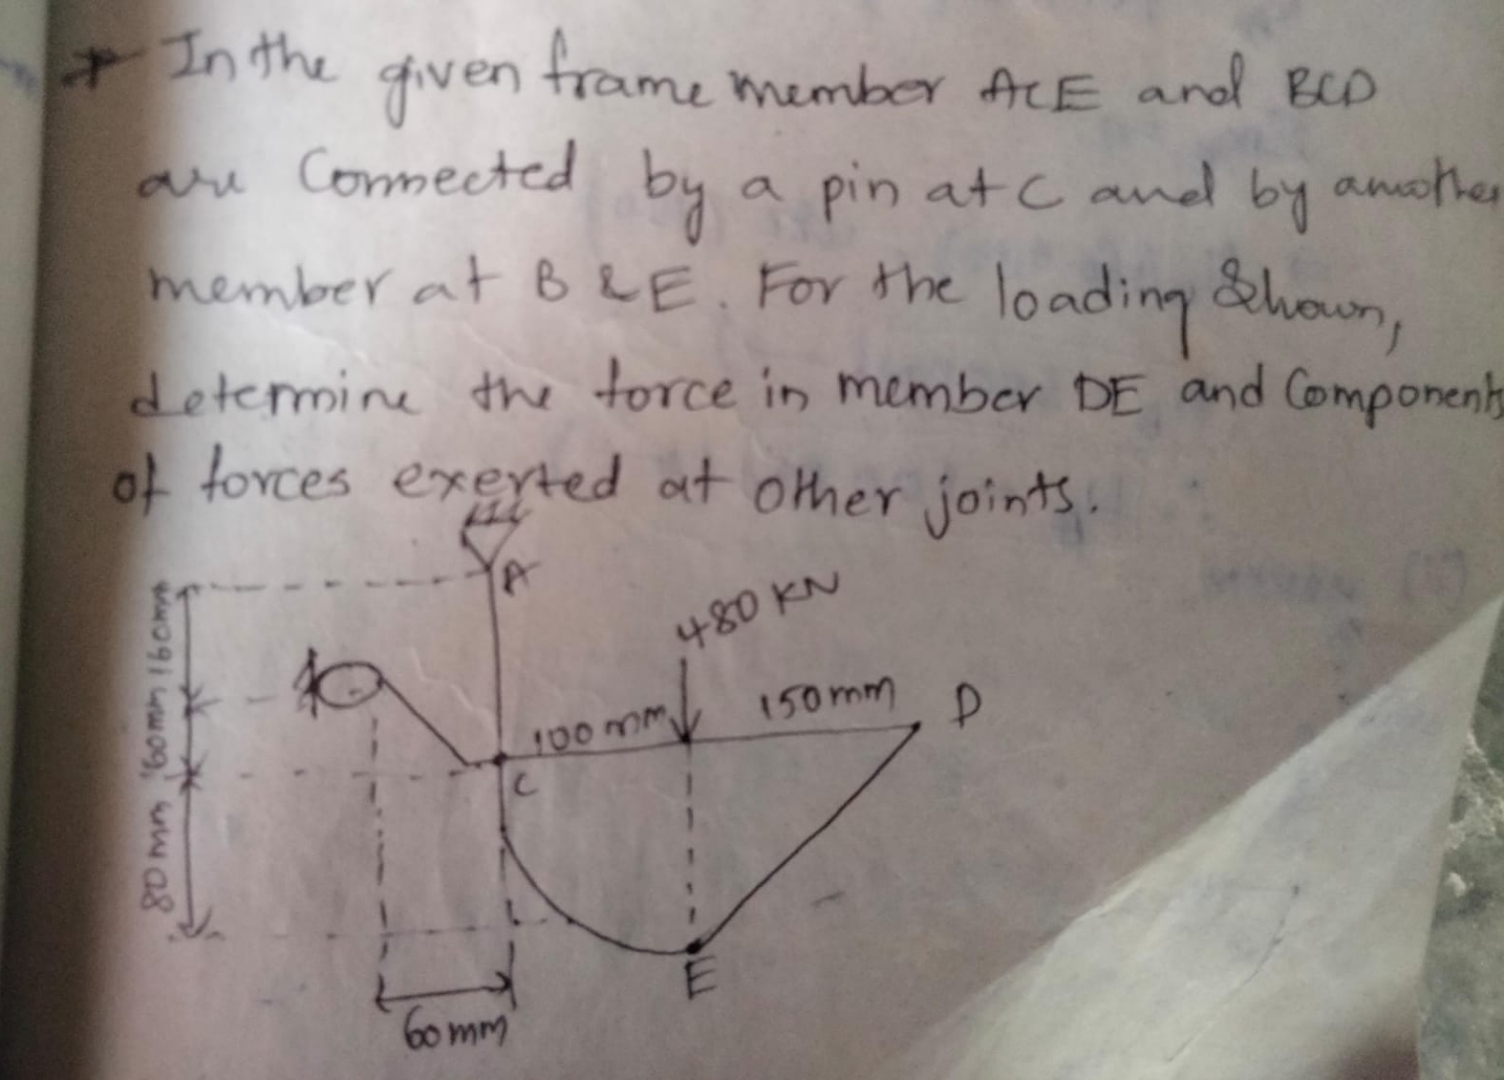 * In the given frame member ACE and BCD
are Connected by a pin at C and by another
member at B & E. For the loading Shown,
determine the force in member DE and Components
of forces exerted at other joints.
A
480 KN
160mm
150mm D
100 mm
60mm
C
80mm
E
60mm